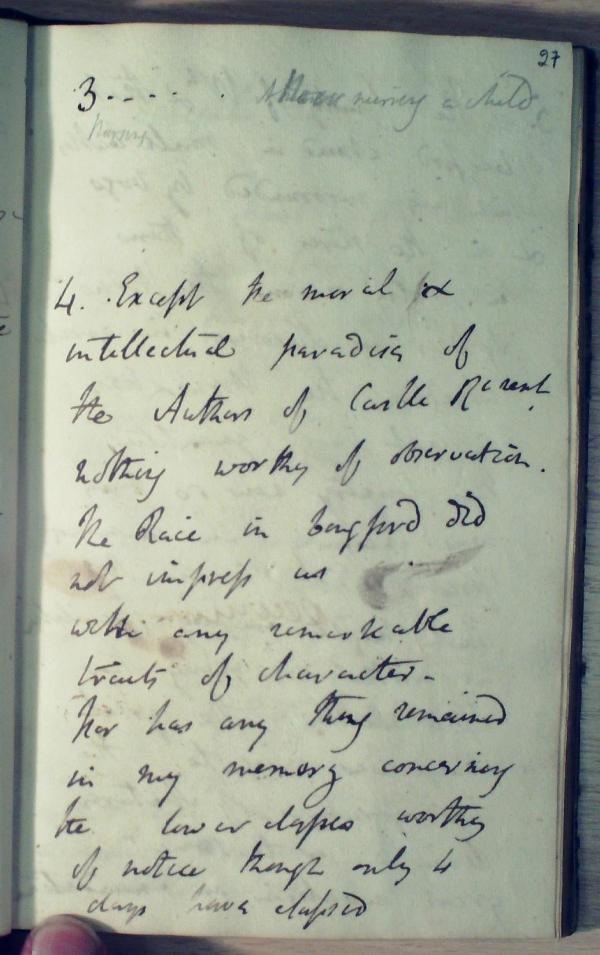 27
3 - - - . . nursing a child
4. Except the moral &
intellectual paradise of
the Author of Castle Racrent
nothing worthy of observation.
The Race in Longford did
not impress us
with any remarkable
traits of character -
Nor has any thing remained
in my memory concerning
the lower classes worthy
of notice though only 4
days have elapsed